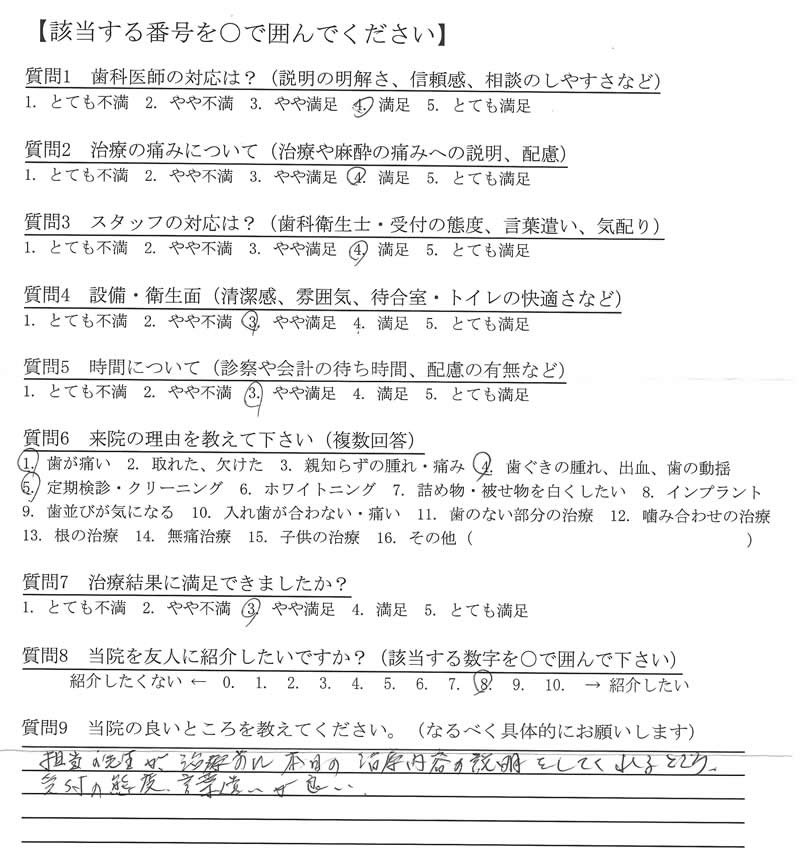 【該当する番号を○で囲んでください】
質問1 歯科医師の対応は?(説明の明解さ、信頼感、相談のしやすさなど)
1. とても不満 2. やや不満 3. やや満足 4. 満足 5. とても満足
質問2 治療の痛みについて(治療や麻酔の痛みへの説明、配慮)
1. とても不満 2. やや不満 3. やや満足 4. 満足 5. とても満足
質問3 スタッフの対応は?(歯科衛生士・受付の態度、言葉遣い、気配り)
1. とても不満 2. やや不満 3. やや満足 4. 満足 5. とても満足
質問4 設備・衛生面(清潔感、雰囲気、待合室・トイレの快適さなど)
1. とても不満 2. やや不満 3. やや満足 4. 満足 5. とても満足
質問5 時間について(診察や会計の待ち時間、配慮の有無など)
1. とても不満 2. やや不満 3. やや満足 4. 満足 5. とても満足
質問6 来院の理由を教えて下さい(複数回答)
1. 歯が痛い 2. 取れた、欠けた 3. 親知らずの腫れ・痛み 4. 歯ぐきの腫れ、出血、歯の動揺
5. 定期検診・クリーニング 6. ホワイトニング 7. 詰め物・被せ物を白くしたい 8. インプラント
9. 歯並びが気になる 10. 入れ歯が合わない・痛い 11. 歯のない部分の治療 12. 噛み合わせの治療
13. 根の治療 14. 無痛治療 15. 子供の治療 16. その他( )
質問7 治療結果に満足できましたか?
1. とても不満 2. やや不満 3. やや満足 4. 満足 5. とても満足
質問8 当院を友人に紹介したいですか?(該当する数字を○で囲んで下さい)
紹介したくない ← 0. 1. 2. 3. 4. 5. 6. 7. 8. 9. 10. → 紹介したい
質問9 当院の良いところを教えてください。(なるべく具体的にお願いします)
担当の先生が、治療前に本日の治療内容の説明をしてくれるところ、
受付の態度、言葉遣いが良い。